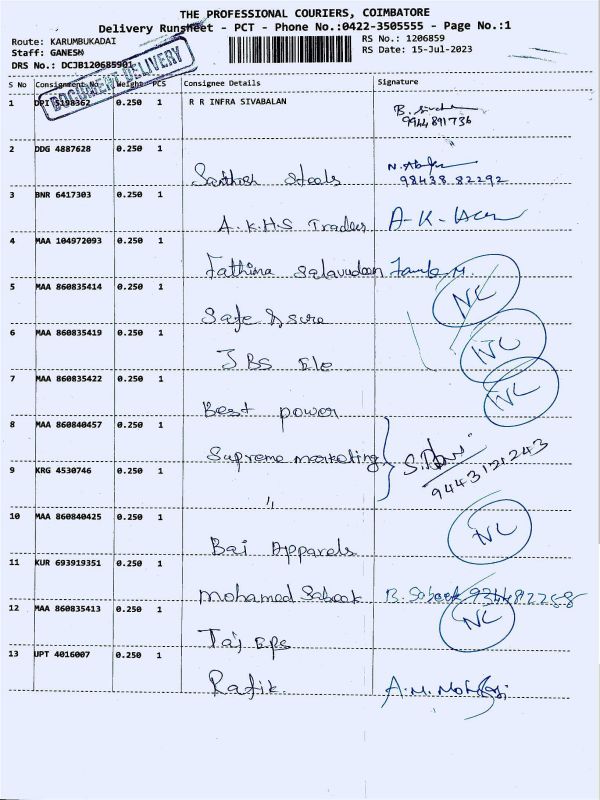 THE PROFESSIONAL COURIERS, COIMBATORE
Delivery Runsheet - PCT - Phone No.:0422-3505555 - Page No.:1
Route: KARUMBUKADAI
RS No.: 1206859
Staff: GANESN
RS Date: 15-Jul-2023
DRS No.: DCJB120685901
DOCUMENT DELIVERY
S No Consignment No Weight PCS Consignee Details Signature
1 DPI 5198362 0.250 1 R R INFRA SIVABALAN
9944891736
2 DDG 4887628 0.250 1
Santhosh Steels 98438 82292
3 BNR 6417303 0.250 1
A.K.H.S Traders A-K-
4 MAA 104972093 0.250 1
Fathima Salavudeen
5 MAA 860835414 0.250 1
Safe & sure NC
6 MAA 860835419 0.250 1
JBS Ele NC
7 MAA 860835422 0.250 1
Best power NC
8 MAA 860840457 0.250 1
Supreme marketing
9443121243
9 KRG 4530746 0.250 1
"
10 MAA 860840425 0.250 1
Bai Apparels NC
11 KUR 693919351 0.250 1
mohamed Sabeek B. Sabeek
12 MAA 860835413 0.250 1
Taj EPS NC
13 UPT 4016007 0.250 1
Rafik A.M.